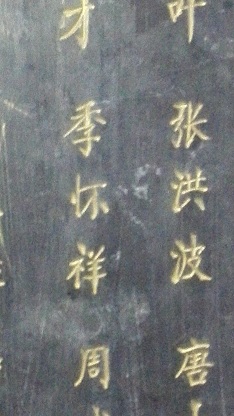 叶 张洪波 唐
才 季怀祥 周